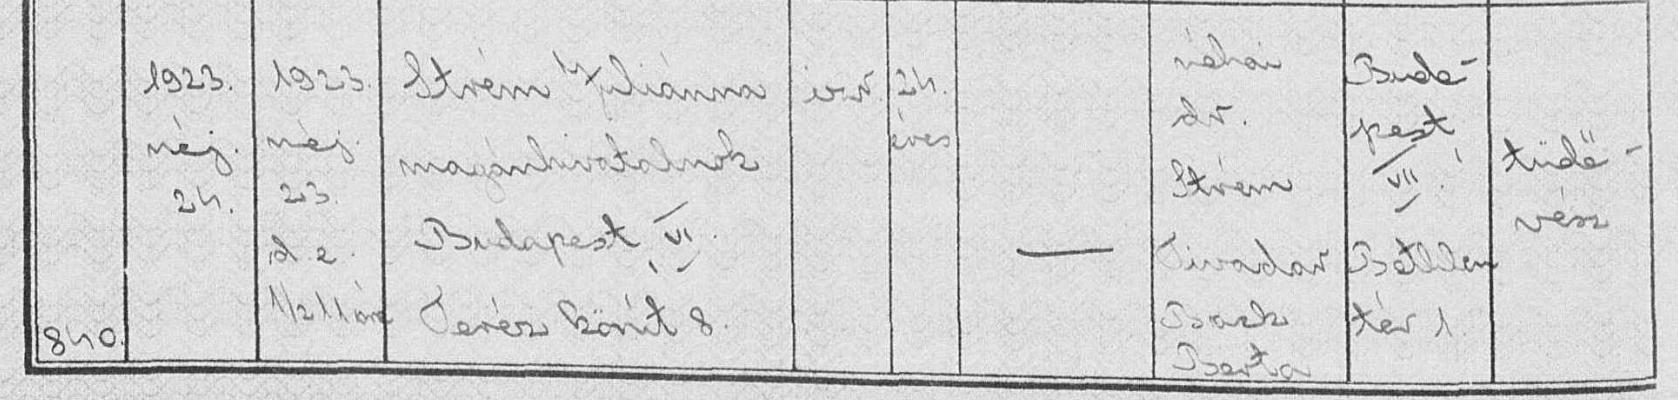 840.
1923.
néj.
24.
1923.
néj.
23.
d. e.
1/2 11 óra
Strém Juliánna
magánhivatalnok
Budapest, VI.
Teréz körút 8.
izr.
24.
éves
—
néhai
dr.
Strém
Tivadar
Back
Berta
Buda-
pest,
VII.
Betlen
tér 1.
tüdő-
vész